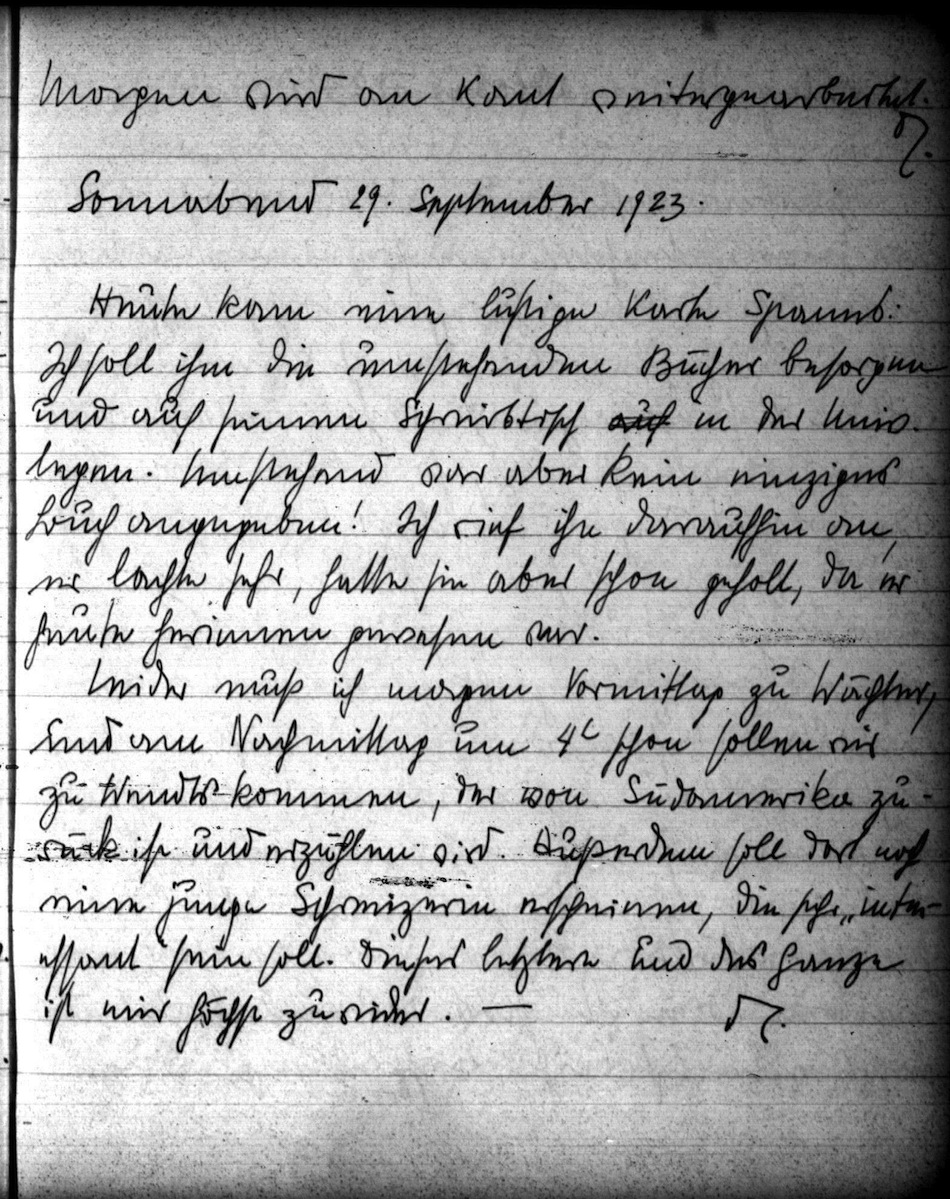 Morgen wird an Kant weitergearbeitet.
Sonnabend 29. September 1923.
Heute kam eine lustige Karte Spanns:
Ich soll ihm die umstehenden Bücher besorgen
und auf seinen Schreibtisch auf in der Univ.
legen. Umstehend war aber kein einziges
Buch angegeben! Ich rief ihn daraufhin an,
er lachte sehr, hatte sie aber schon geholt, da er
heute herinnen gewesen war.
Leider muß ich morgen Vormittag zu Wächter,
und am Nachmittag um 4 schon sollen wir
zu Wendts kommen, der von Südamerika zu-
rück ist und erzählen wird. Außerdem soll dort noch
eine junge Schweizerin erscheinen, die sehr „inter-
essant“ sein soll. Dieses letztere und das Ganze
ist mir höchst zuwider. —